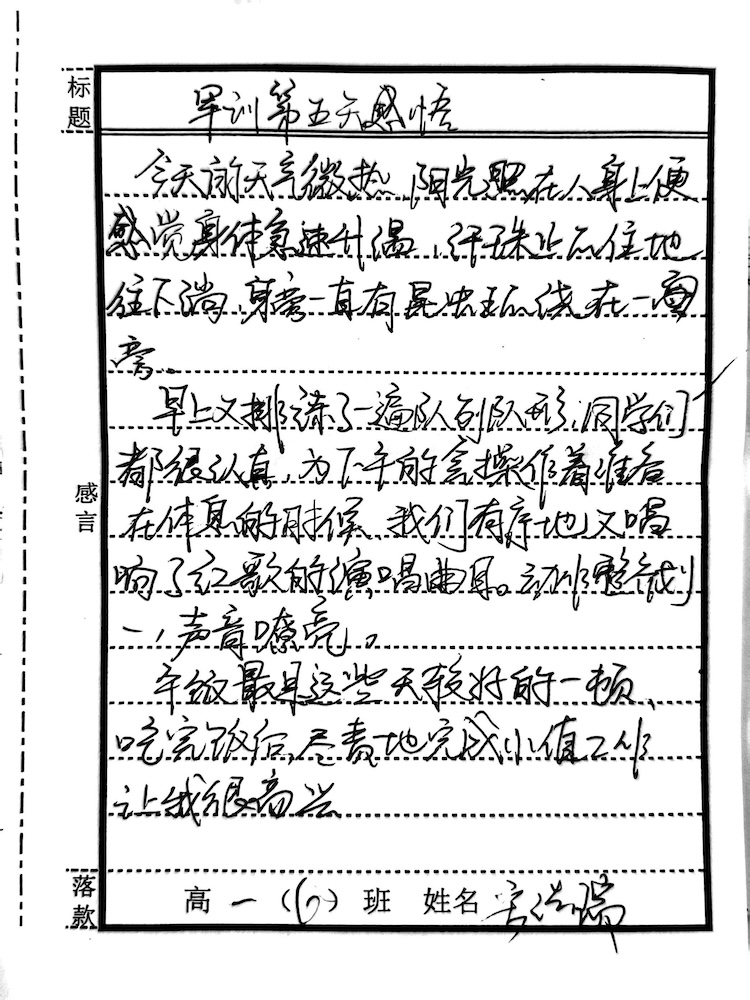 标题
军训第五天感悟
今天的天气微热,阳光照在人身上便
感觉身体急速升温,汗珠止不住地
往下淌,身旁一直有昆虫在一
旁。
早上又排练了一遍队列队形,同学们
都很认真,为下午的会操作着准备
在休息的时候,我们有序地又唱
响了红歌的演唱曲目。动作整齐划
一,声音嘹亮。
午饭最是这些天较好的一顿,
吃完饭后,尽责地完成小值工作
让我很高兴
感言
落款
高一(6)班 姓名